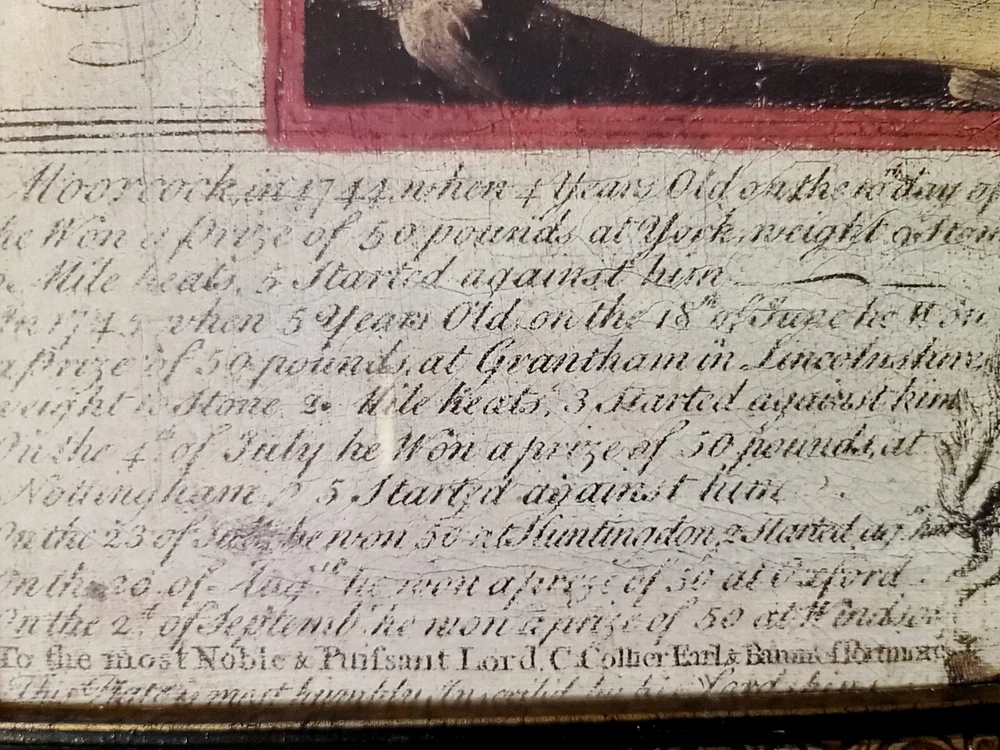 Moorcock, in 1744, when 4 Years Old on the 10th day of
he Won a Prize of 50 pounds at York, weight 9 Stone
Mile heats, 5 Started against him
1745 when 5 Years Old, on the 18th of June he Won
a Prize of 50 pounds, at Grantham in Lincolnshire
weight 10 Stone, 2 Mile heats, 3 Started against him
On the 4th of July he Won a prize of 50 pounds, at
Nottingham 5 Started against him
On the 23 of July he won 50 at Huntingdon, 2 Started ag him
On the 20 of Augst he won a prize of 50 at Oxford
On the 2d of Septemb. he won a prize of 50 at Windsor
To the most Noble & Puissant Lord, C. Collier Earl &
This Plate is most humbly Inscrib'd by his Lordships